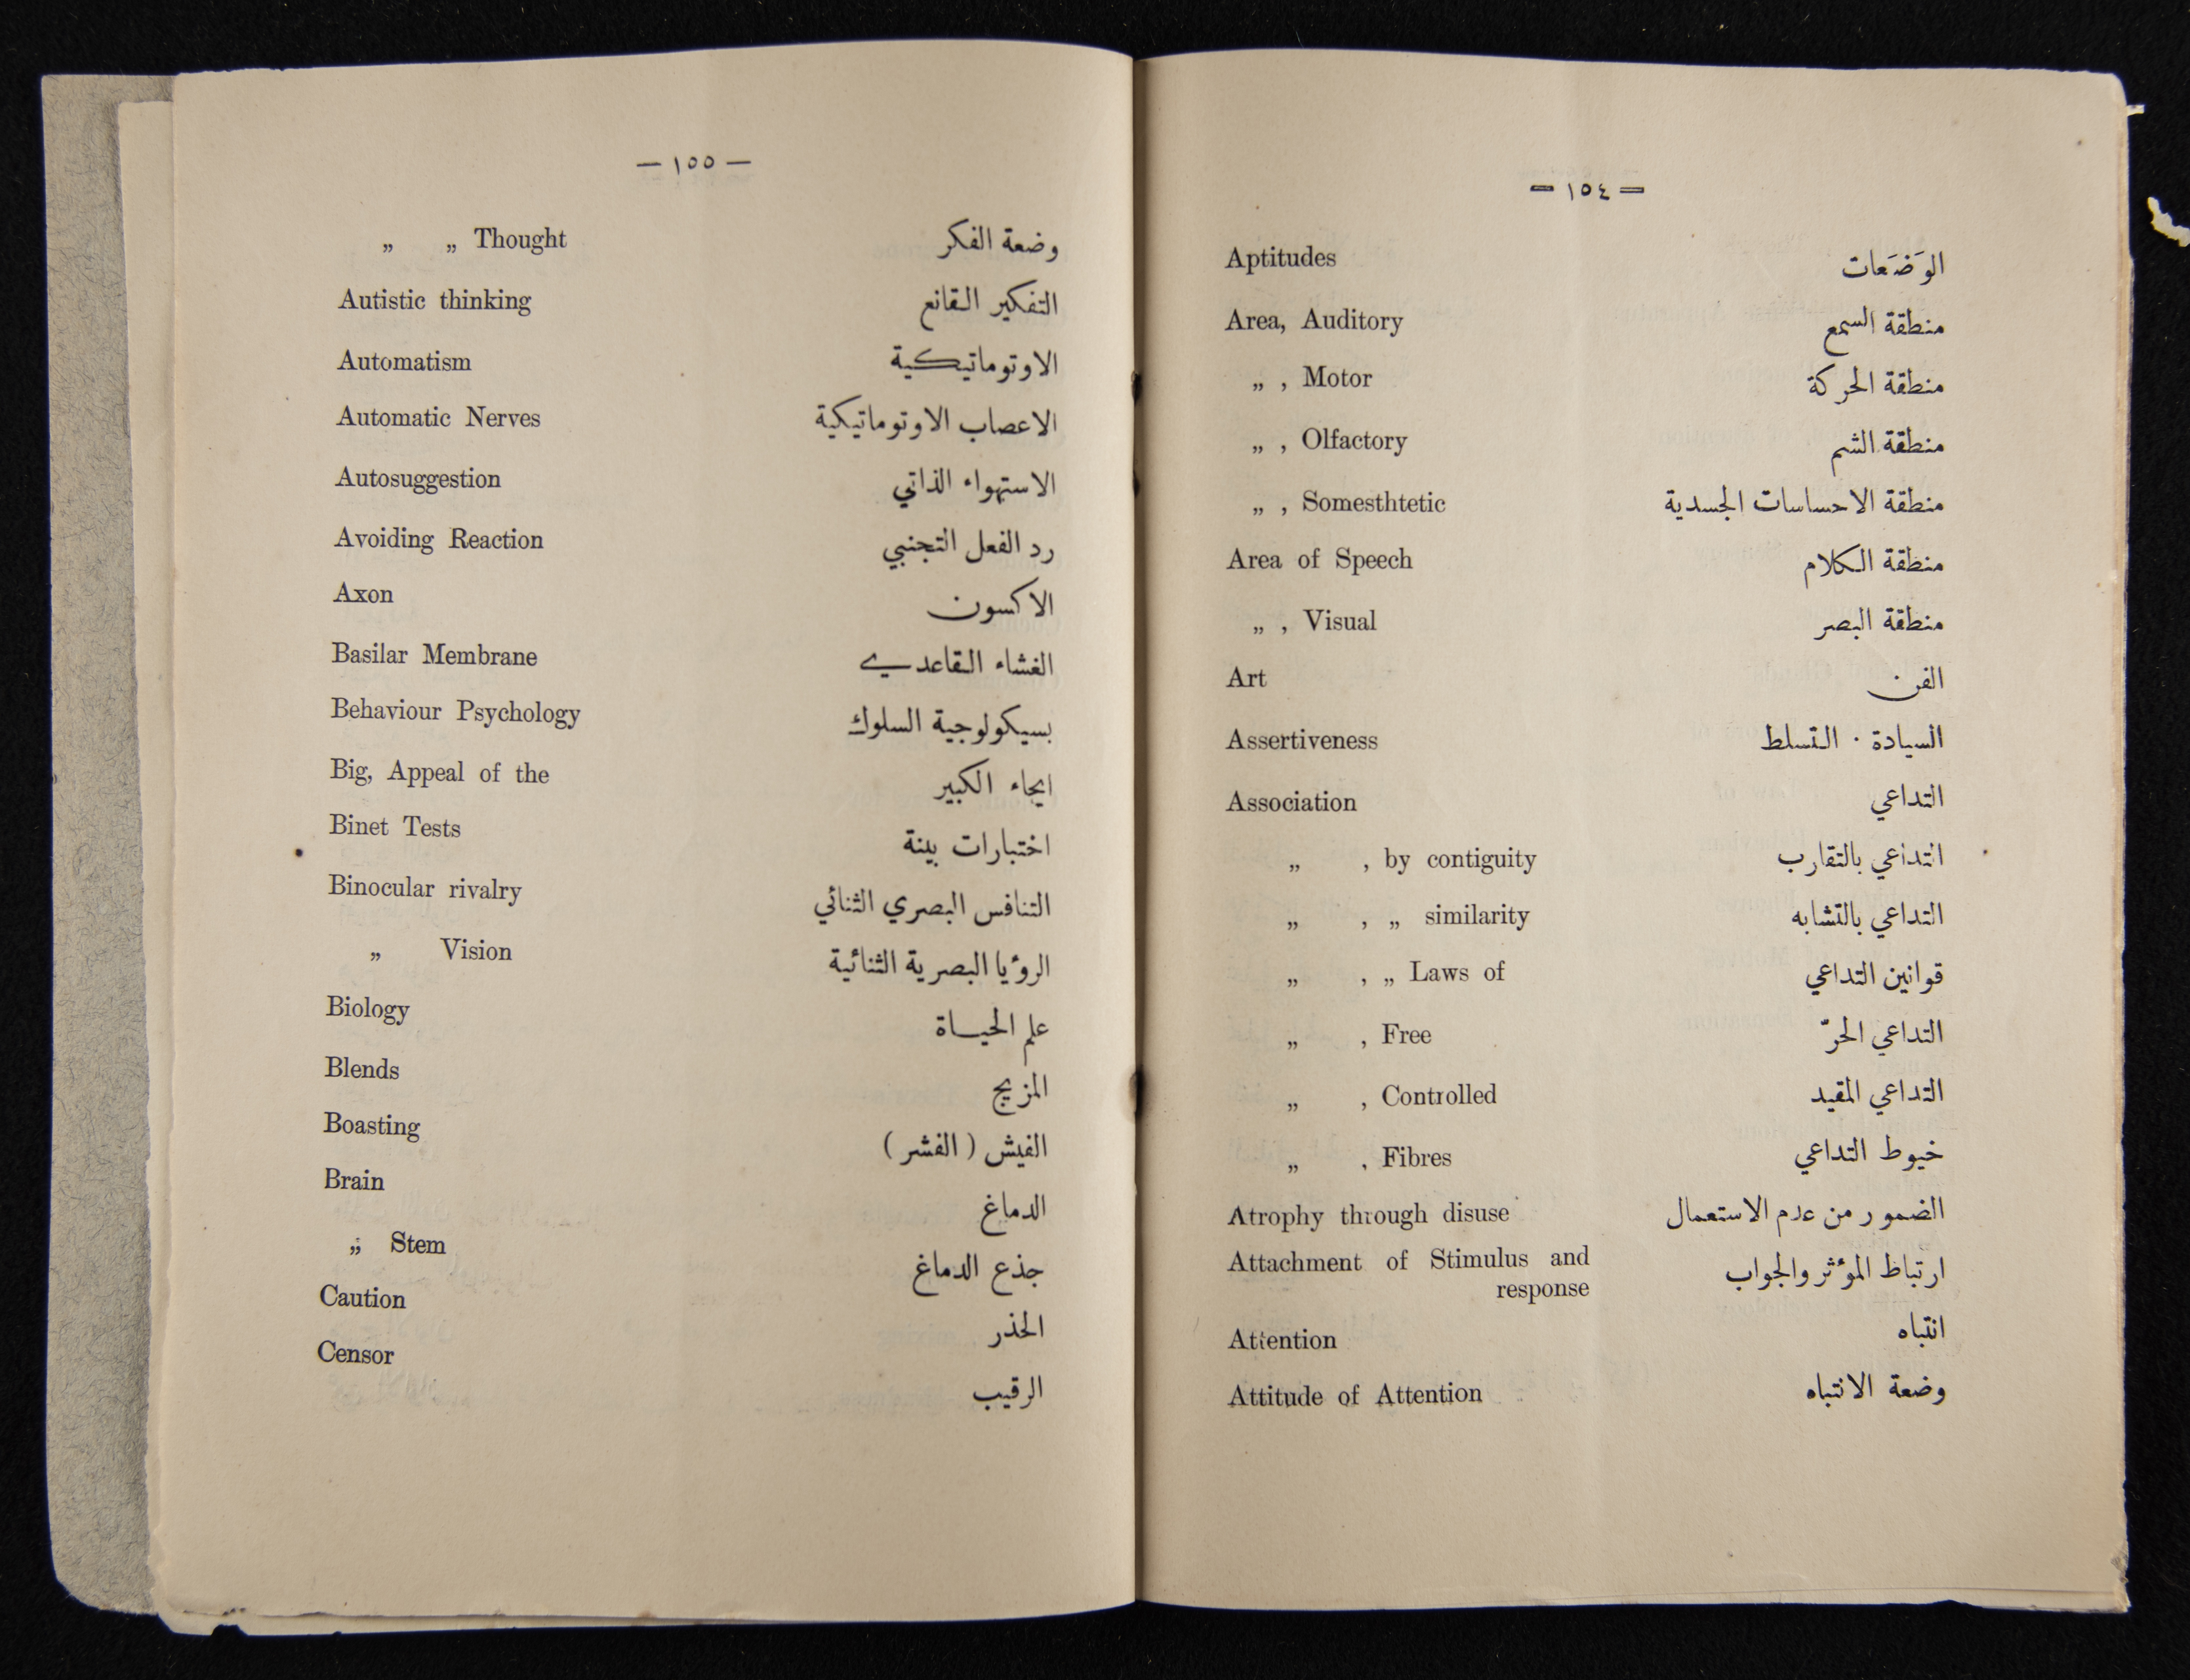 — ١٥٤ —
Aptitudes الوَضَعات
Area, Auditory منطقة السمع
„ , Motor منطقة الحركة
„ , Olfactory منطقة الشم
„ , Somesthtetic منطقة الاحساسات الجسدية
Area of Speech منطقة الكلام
„ , Visual منطقة البصر
Art الفن
Assertiveness السيادة . التسلط
Association التداعي
„ , by contiguity التداعي بالتقارب
„ , „ similarity التداعي بالتشابه
„ , „ Laws of قوانين التداعي
„ , Free التداعي الحرّ
„ , Controlled التداعي المقيد
„ , Fibres خيوط التداعي
Atrophy through disuse الضمور من عدم الاستعمال
Attachment of Stimulus and ارتباط المؤثر والجواب
response
Attention انتباه
Attitude of Attention وضعة الانتباه
— ١٥٥ —
„ „ Thought وضعة الفكر
Autistic thinking التفكير القانع
Automatism الاوتوماتيكية
Automatic Nerves الاعصاب الاوتوماتيكية
Autosuggestion الاستهواء الذاتي
Avoiding Reaction رد الفعل التجنبي
Axon الاكسون
Basilar Membrane الغشاء القاعدي
Behaviour Psychology بسيكولوجية السلوك
Big, Appeal of the ايحاء الكبير
Binet Tests اختبارات بينة
Binocular rivalry التنافس البصري الثنائي
„ Vision الرؤيا البصرية الثنائية
Biology علم الحياة
Blends المزيج
Boasting الفيش ( الفشر )
Brain الدماغ
„ Stem جذع الدماغ
Caution الحذر
Censor الرقيب